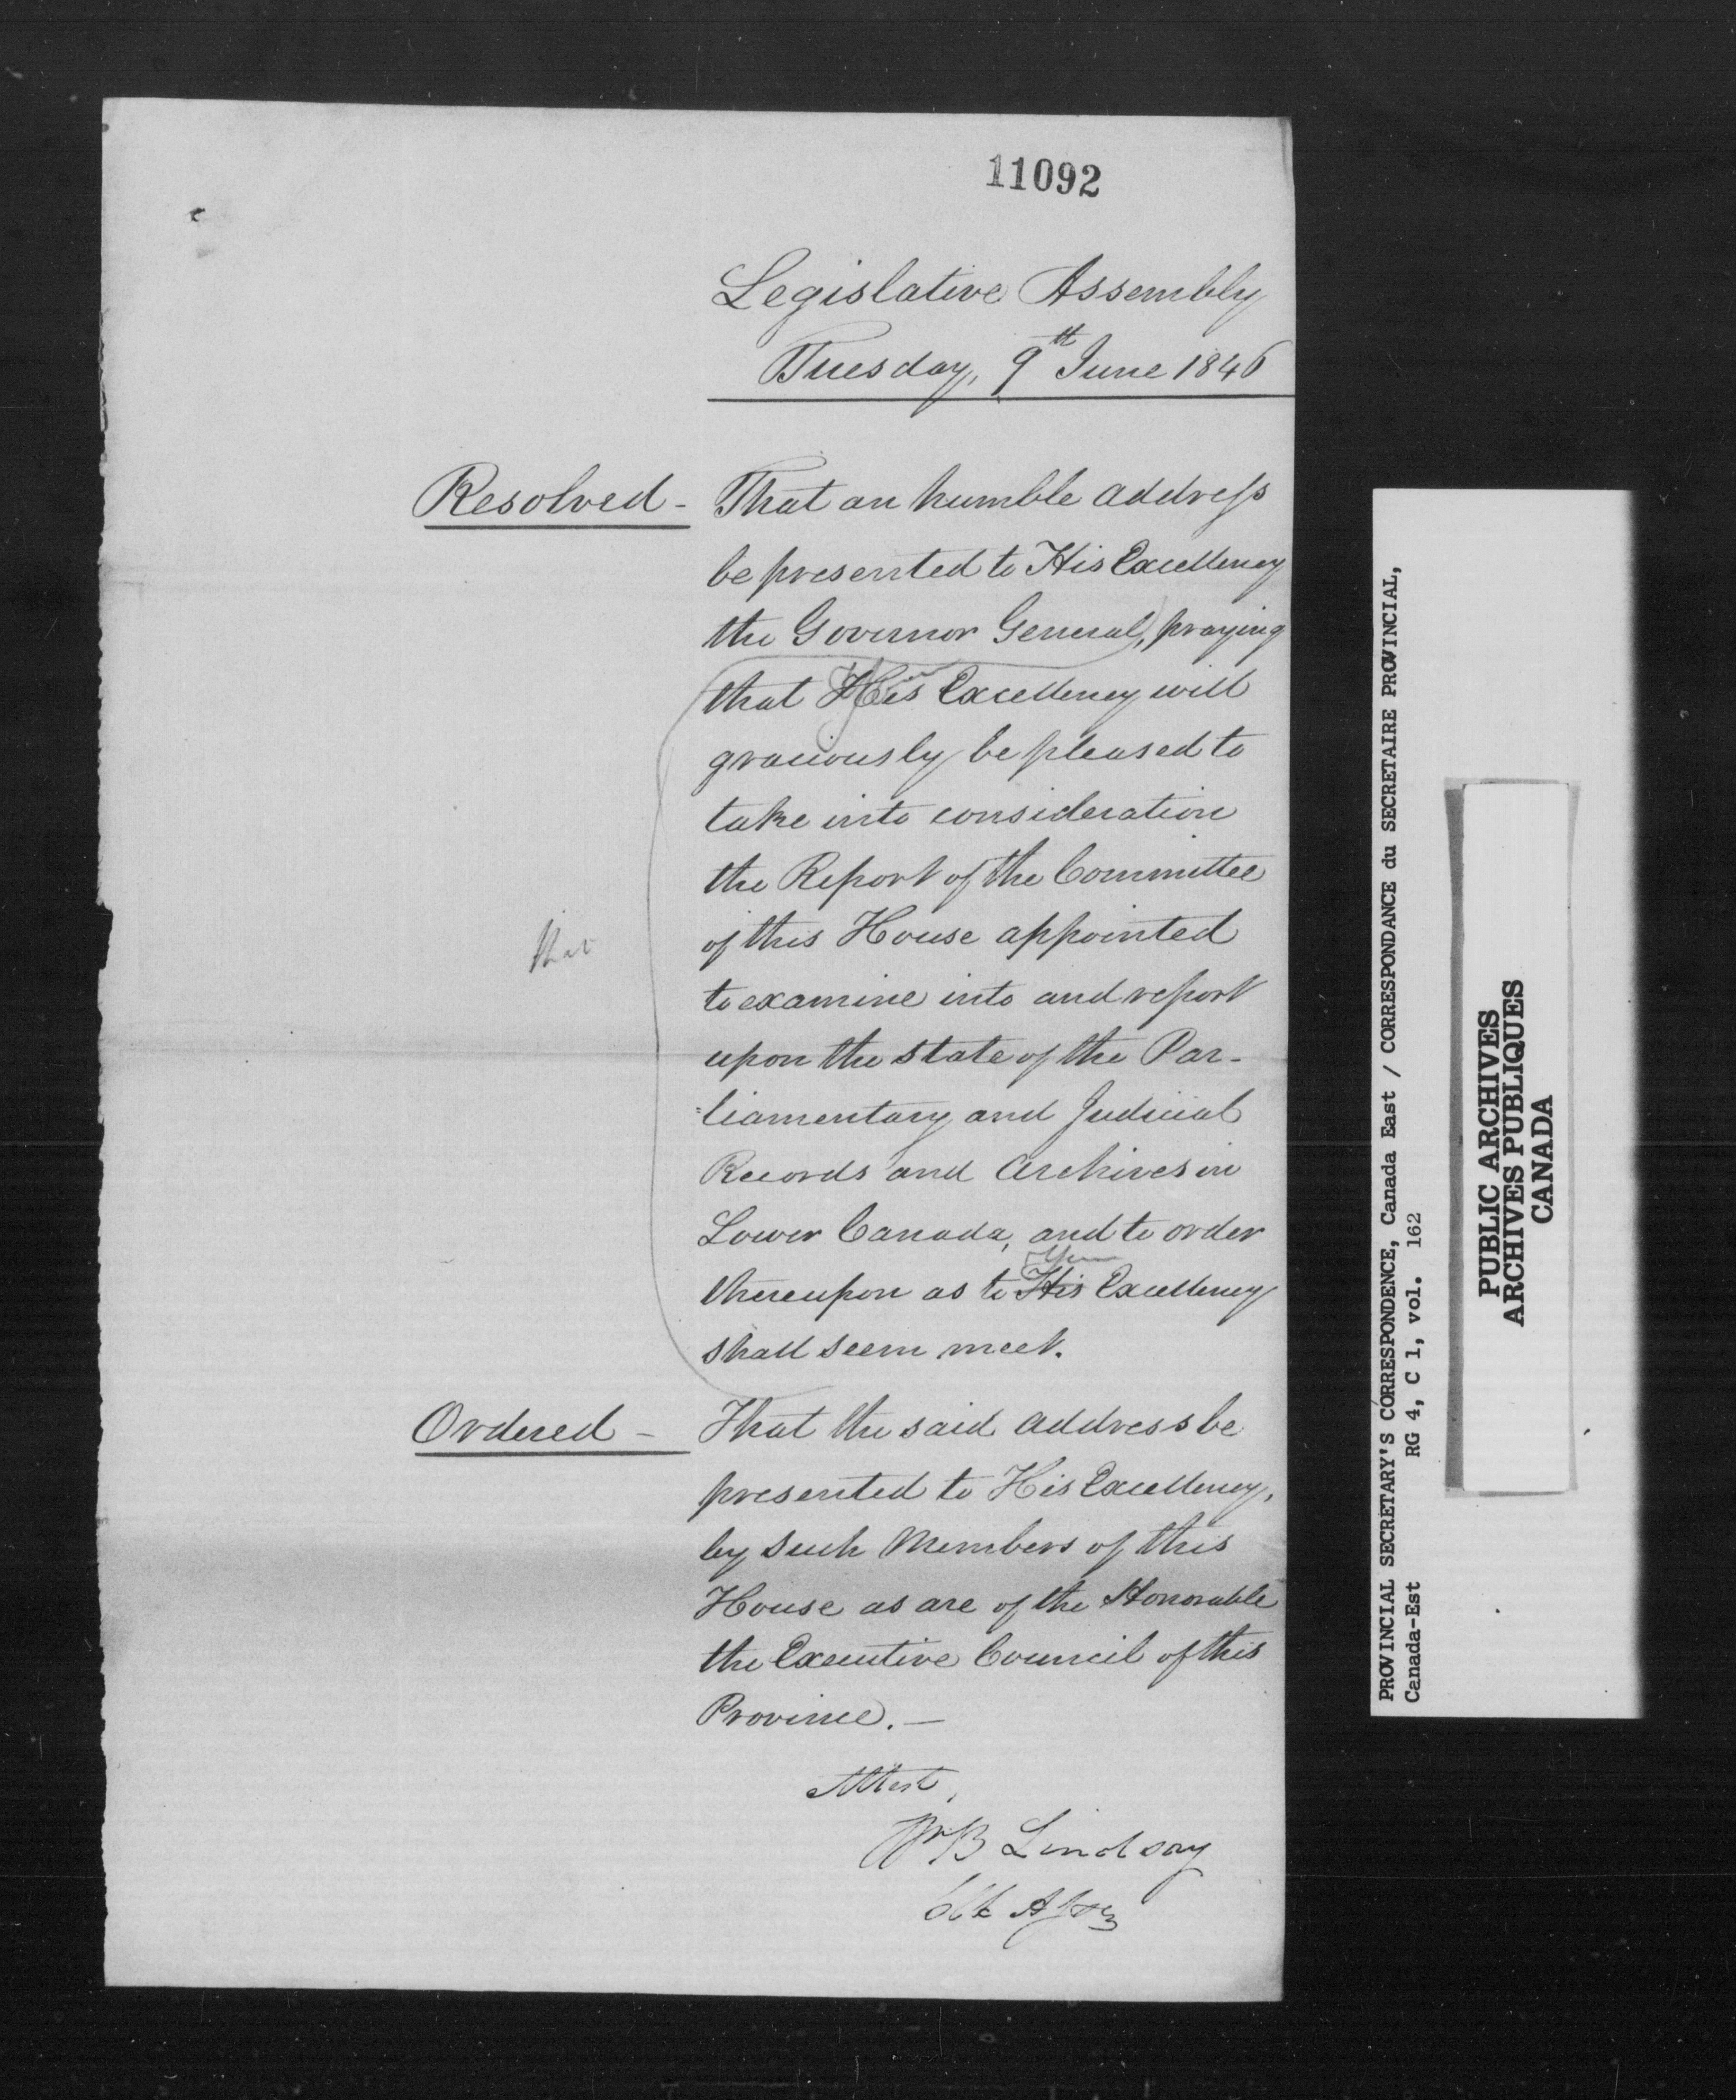 11092
Legislative Assembly
Tuesday, 9th June 1846
Resolved - That an humble address
be presented to His Excellency
the Governor General, praying
that His Excellency will
graciously be pleased to
take into consideration
the Report of the Committee
of this House appointed
to examine into and report
upon the state of the Par-
=liamentary and Judicial
Records and Archives in
Lower Canada, and to order
Your
thereupon as to His Excellency
shall seem meet.
that
Ordered - That the said address be
presented to His Excellency,
by such Members of this
House as are of the Honorable
the Executive Council of this
Province. —
Attest,
Wm B Lindsay
Clk Assy
PROVINCIAL SECRETARY'S CORRESPONDENCE, Canada East / CORRESPONDANCE du SECRETAIRE PROVINCIAL,
Canada-Est RG 4, C 1, vol. 162
PUBLIC ARCHIVES
ARCHIVES PUBLIQUES
CANADA